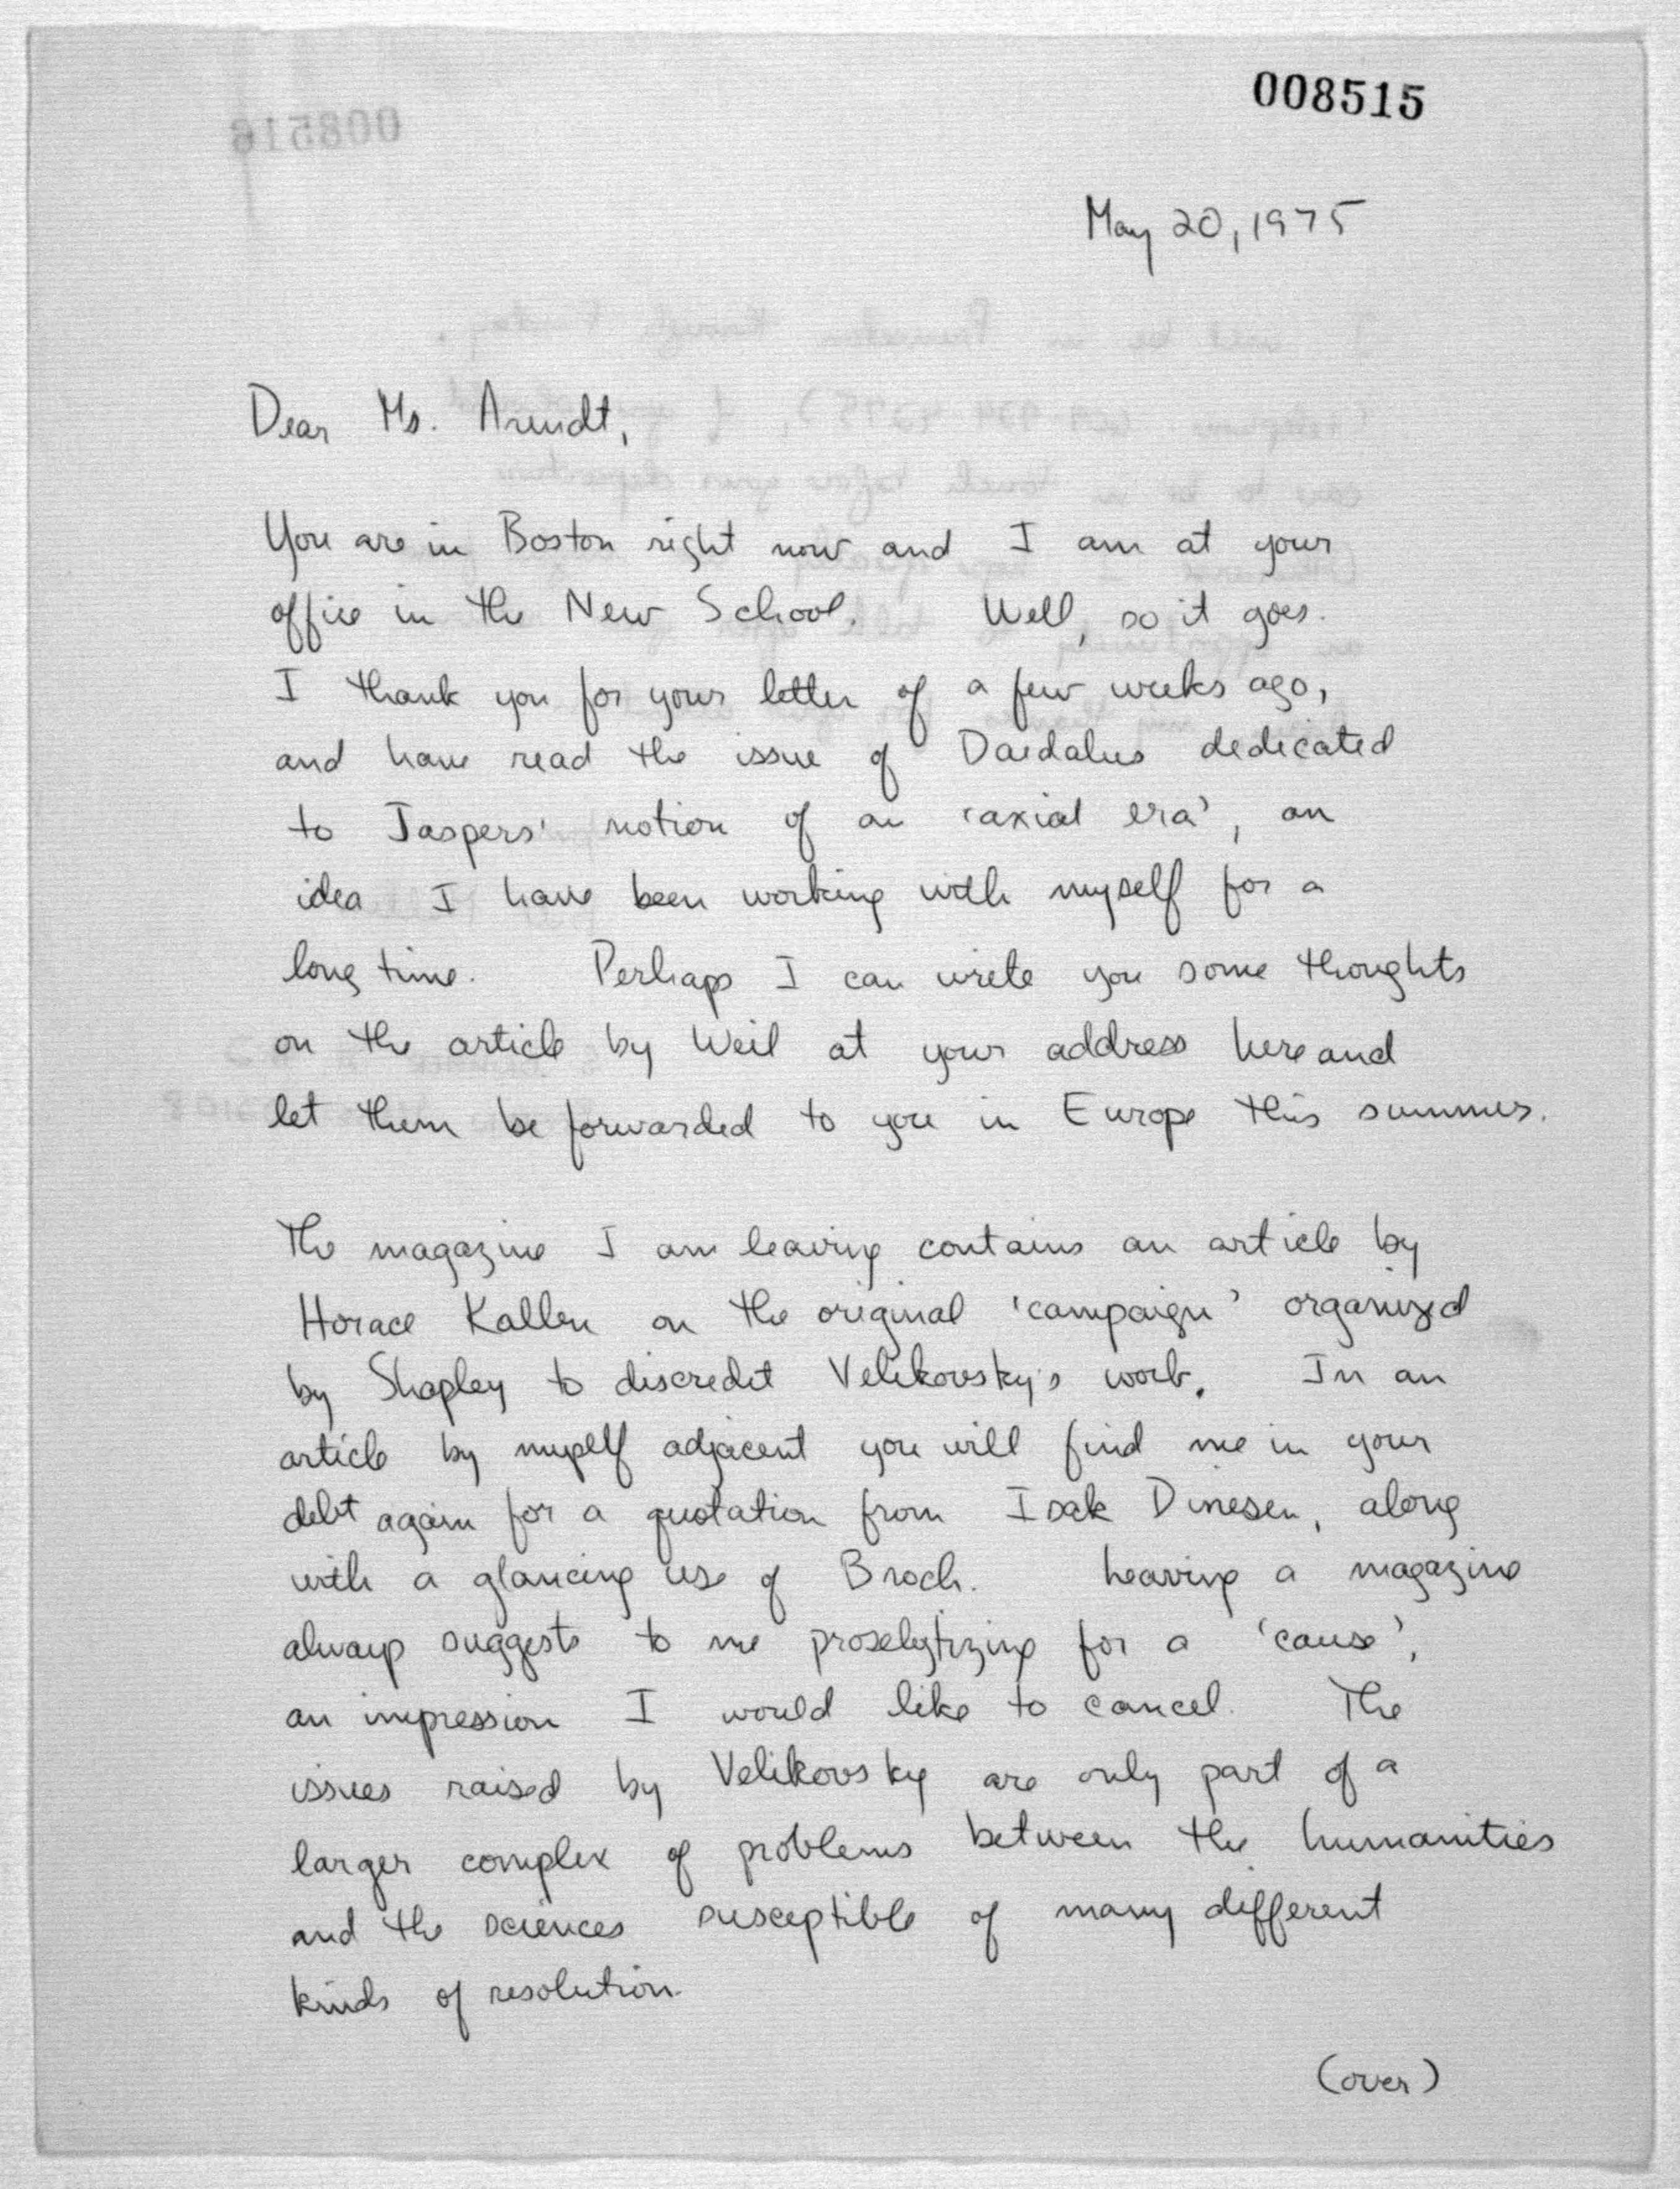 008515
008516
May 20, 1975
Dear Ms. Arendt,
You are in Boston right now and I am at your
office in the New School. Well, so it goes.
I thank you for your letter of a few weeks ago,
and have read the issue of Daedalus dedicated
to Jaspers' notion of an 'axial era', an
idea I have been working with myself for a
long time. Perhaps I can write you some thoughts
on the article by Weil at your address here and
let them be forwarded to you in Europe this summer.
The magazine I am leaving contains an article by
Horace Kallen on the original 'campaign' organized
by Shapley to discredit Velikovsky's work. In an
article by myself adjacent you will find me in your
debt again for a quotation from Isak Dinesen, along
with a glancing use of Broch. Leaving a magazine
always suggests to me proselytizing for a 'cause',
an impression I would like to cancel. The
issues raised by Velikovsky are only part of a
larger complex of problems between the humanities
and the sciences susceptible of many different
kinds of resolution.
(over)